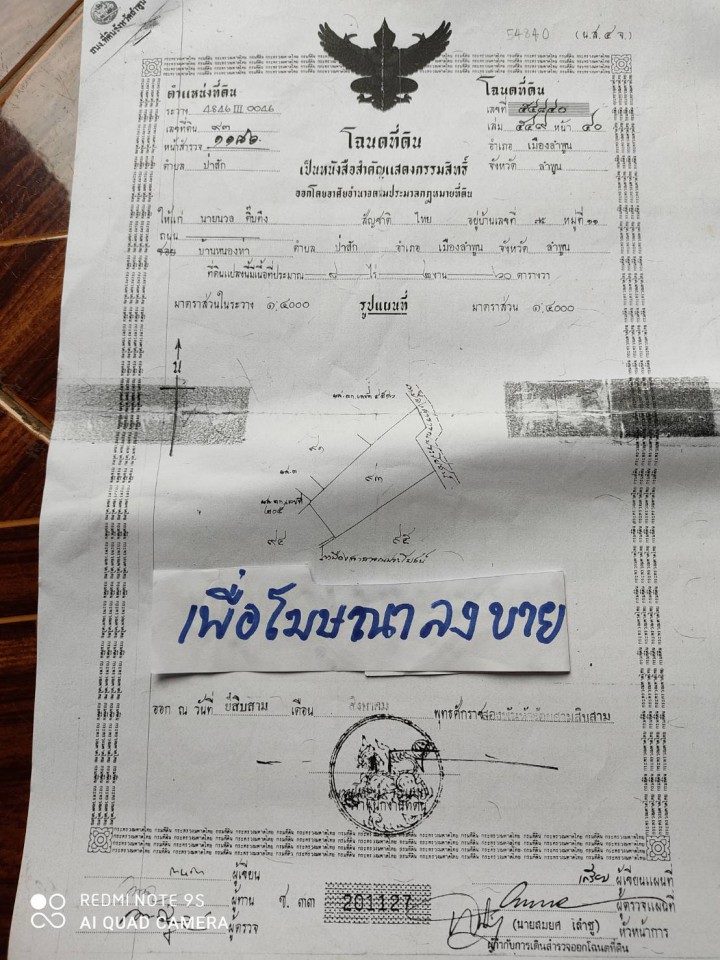 54840 (น.ส.๔ จ.)
ตำแหน่งที่ดิน
ระวาง 4846 III 0046
เลขที่ดิน ๙๓
หน้าสำรวจ ๑๑๘๖
ตำบล ป่าสัก
โฉนดที่ดิน
เลขที่ ๕๔๘๔๐
เล่ม ๕๔๙ หน้า ๔๐
อำเภอ เมืองลำพูน
จังหวัด ลำพูน
โฉนดที่ดิน
เป็นหนังสือสำคัญแสดงกรรมสิทธิ์
ออกโดยอาศัยอำนาจตามประมวลกฎหมายที่ดิน
ให้แก่ นายนวล ติ๊บตึง สัญชาติ ไทย อยู่บ้านเลขที่ หมู่ที่ ๑๑
ถนน
ซอย บ้านหนองท่า ตำบล ป่าสัก อำเภอ เมืองลำพูน จังหวัด ลำพูน
ที่ดินแปลงนี้มีเนื้อที่ประมาณ ๘ ไร่ ๒ งาน ๒๐ ตารางวา
มาตราส่วนในระวาง ๑:๔๐๐๐ รูปแผนที่ มาตราส่วน ๑:๔๐๐๐
น
๙๑
๙๓
๙๔
๙๕
ลำเหมืองสาธารณประโยชน์
เพื่อโฆษณาลงขาย
ออก ณ วันที่ ยี่สิบสาม เดือน สิงหาคม พุทธศักราช สองพันห้าร้อยสามสิบสาม
เจ้าพนักงานที่ดิน
ผู้เขียน
ผู้ทาน
ผู้ตรวจ
ช. ๓๓ 201127
เจริญ ผู้เขียนแผนที่
ผู้ตรวจแผนที่
(นายสมยศ เล่าชู) หัวหน้าการ
ผู้กำกับการเดินสำรวจออกโฉนดที่ดิน
REDMI NOTE 9S
AI QUAD CAMERA